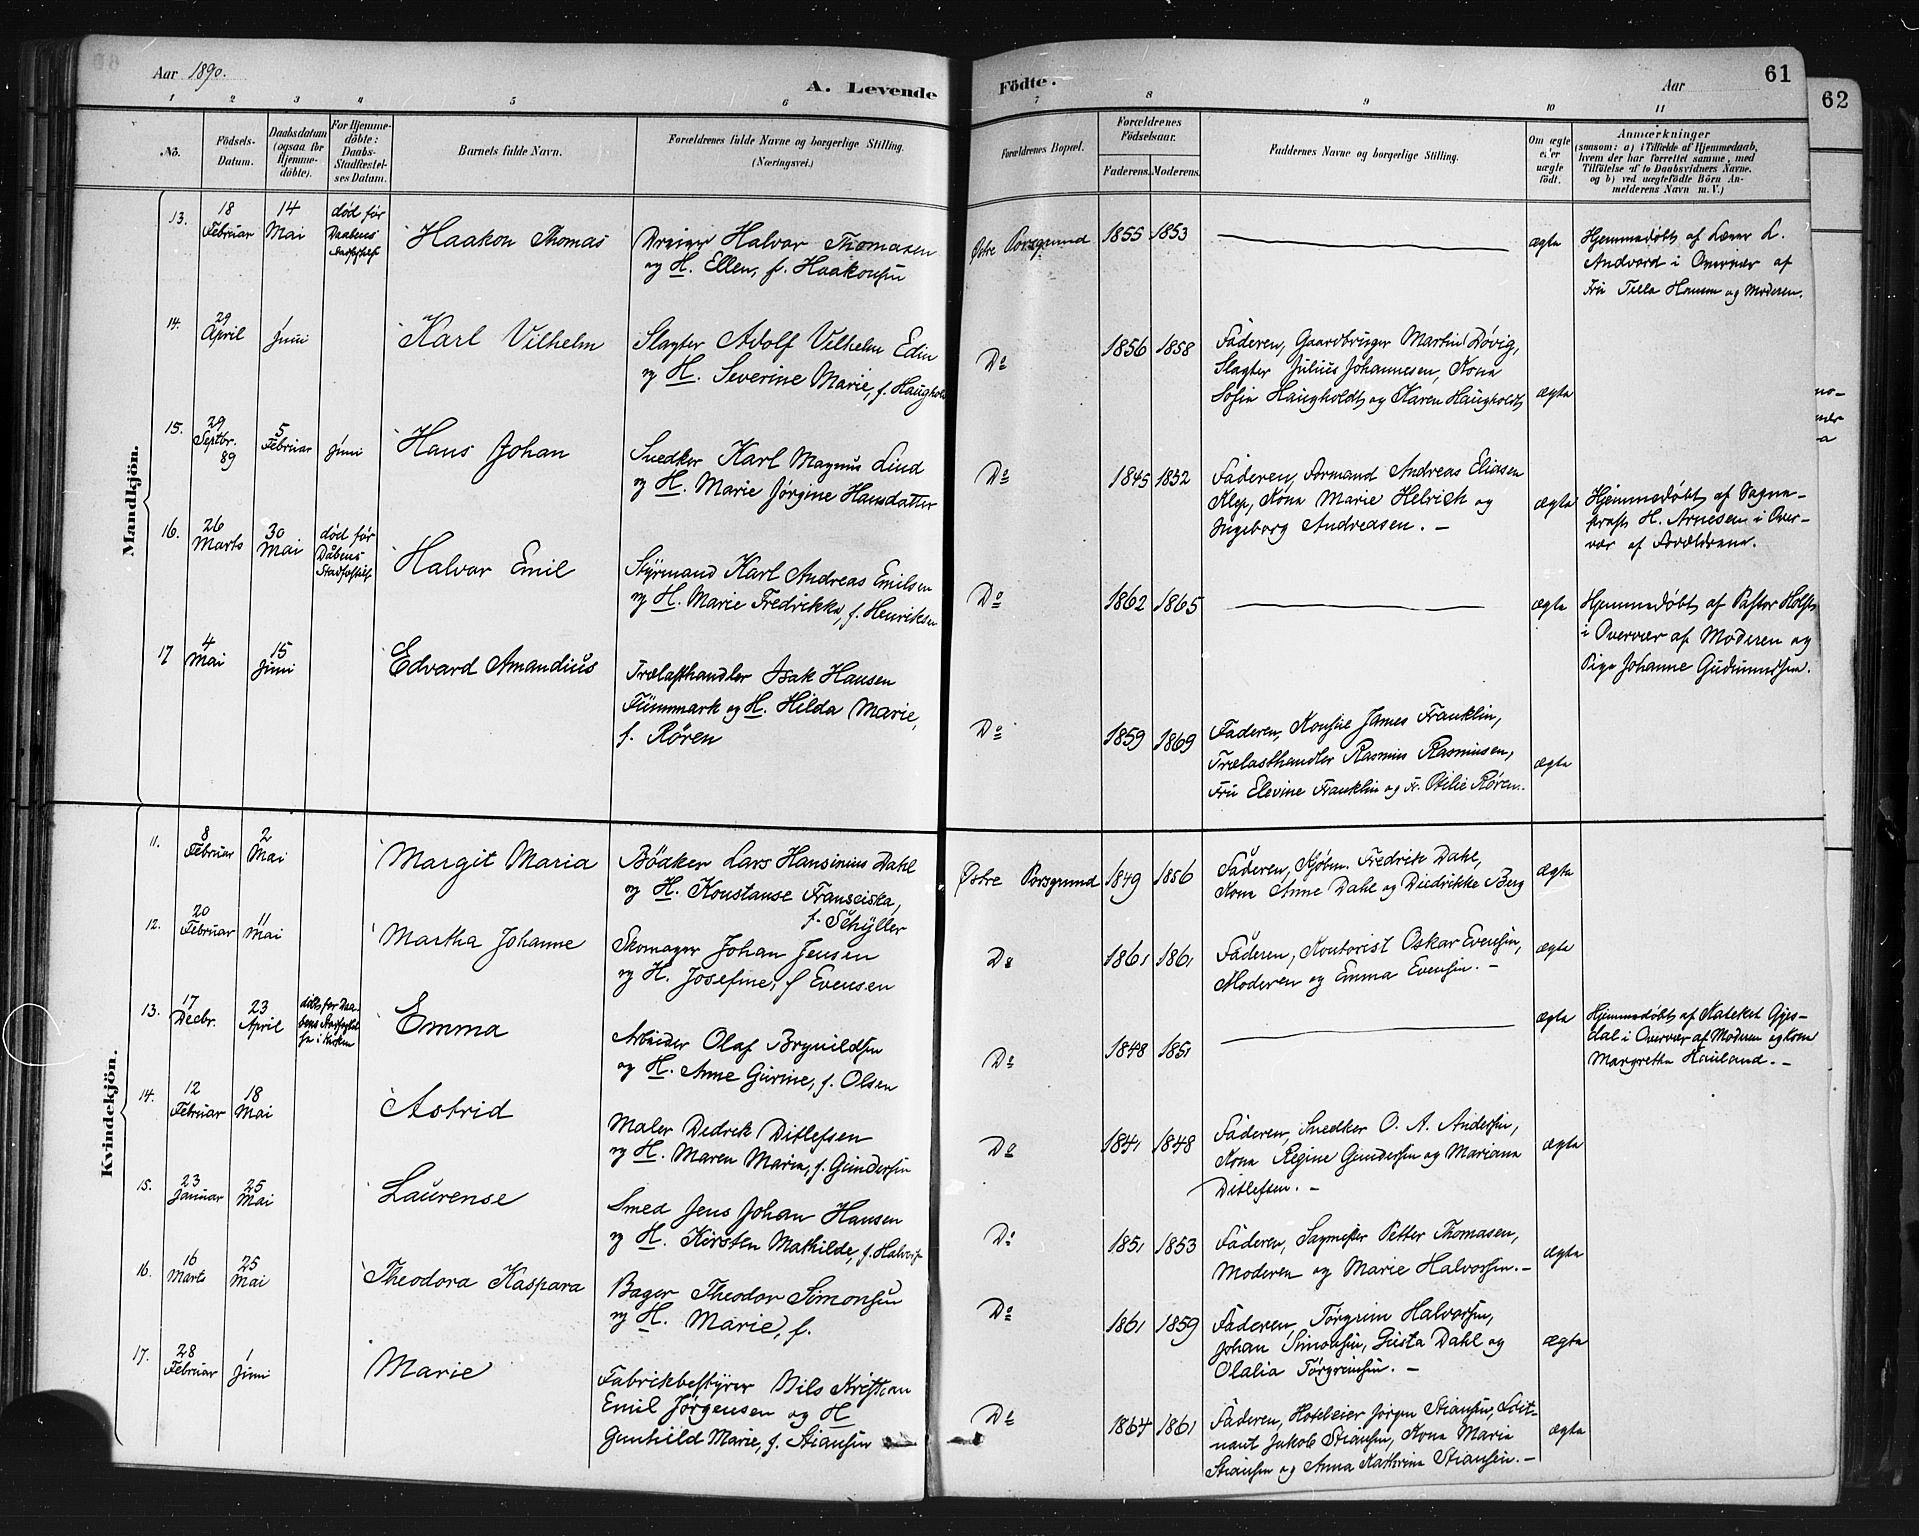 Aar 1890.
A. Levende
Födte.
Aar
61
62
1 2 3 4 5 6 7 8 9 10 11
No.
Födsels-
Datum.
Daabsdatum
(ogsaa for
Hjemme-
døbte).
For Hjemme-
døbte:
Daabs-
Stadfæstel-
ses Datum.
Barnets fulde Navn.
Forældrenes fulde Navne og borgerlige Stilling.
(Næringsvei.)
Forældrenes Bopæl.
Forældrenes
Födselsaar.
Faderens. Moderens.
Faddernes Navne og borgerlige Stilling.
Om ægte
eller
uægte
født.
Anmærkninger
(saasom: a) i Tilfælde af Hjemmedaab,
hvem der har forrettet samme, med
Tilføielse af to Daabsvidners Navne,
og b) ved uægtefödte Börn An-
melderens Navn m. V.)
Mandkjön.
13.
18
Februar
14
Mai
död før
Daabens
Haakon Thomas
Dreier Halvor Thomasen
og H. Ellen, f. Haakonsen
Østre Porsgrund
1855 1853
ægte
Hjemmedøbt af Lærer L.
Andvord i Overvær af
Fru Tilla Hansen og Moderen.
14.
29
April
1
Juni
Karl Vilhelm
Slagter Adolf Vilhelm Edin
og H. Severine Marie, f. Haugholt
Do
1856 1858
Faderen, Gaardbruger Martin Døvig,
Slagter Julius Johannesen, Kona
Sofia Haugholdt og Karen Haugholdt
ægte
15.
29
Septbr.
89
5
Februar
1
Juni
Hans Johan
Snedker Karl Magnus Lind
og H. Marie Jørgine Hansdatter
Do
1845 1852
Faderen, Formand Andreas Eliasen
Klep, Kona Marie Helrich og
Ingeborg Andreasen. –
ægte
Hjemmedøbt af Sogne-
præst H. Arnesen i Over-
vær af Forældrene.
16.
26
Marts
30
Mai
død før
Daabens
Stadfæstelse
Halvor Emil
Styrmand Karl Andreas Emilsen
og H. Marie Fredrikke, f. Henriksen
Do
1862 1865
ægte
Hjemmedøbt af Pastor Holst
i Overvær af Moderen og
Pige Johanne Gudmundsen.
17
4
Mai
15
Juni
Edvard Amandius
Trælasthandler Isak Hansen
Fimmark og H. Hilda Marie,
f. Røren
Do
1859 1869
Faderen, Konstie James Franklin,
Trælasthandler Rasmus Rasmusen,
Fru Elevine Franklin og Fr. Otilie Røren.
ægte
Kvindekjön.
11.
8
Februar
2
Mai
Margit Maria
Bödker Lars Hansinius Dahl
og H. Konstanse Fransciska,
f. Schyller
Østre Porsgrund
1849 1856
Faderen, Kjøbm. Fredrik Dahl,
Kona Anne Dahl og Diedrikke Berg
ægte
12.
20
Februar
11
Mai
Martha Johanne
Skomager Johan Jensen
og H. Josefine, f Evensen
Do
1861 1861
Faderen, Kontorist Oskar Evensen,
Moderen og Emma Evensen. –
ægte
13.
17
Decbr.
23
April
Emma
Arbeider Olaf Brynildsen
og H. Anne Gurine, f. Olsen
Do
1848 1851
ægte
Hjemmedøbt af Kateket Gjes-
dal i Overvær af Moderen og kone
Margrethe Hauland. –
14.
12
Februar
18
Mai
Astrid
Maler Dedrek Ditlefsen
og H. Maren Maria, f. Gundersen
Do
1841 1848
Faderen, Snedker O. A. Andersen,
Kona Regine Gundersen og Mariana
Ditlefsen. –
ægte
15.
23
Januar
25
Mai
Laurense
Smed Jens Johan Hansen
og H. Kirsten Mathilde, f. Halvors
Do
1851 1853
Faderen, Sagmester Petter Thomasen,
Moderen og Marie Halvorsen. –
ægte
16.
16
Marts
25
Mai
Theodora Kaspara
Bager Theodor Simonsen
og H. Marie, f.
Do
1861 1859
Faderen, Törgrim Halvorsen,
Johan Simonsen, Gusta Dahl og
Olalia Törgrimsen. –
ægte
17.
28
Februar
1
Juni
Marie
Fabrikbestyrer Nils Kristian
Emil Jørgensen og H
Gunhild Marie, f. Stiansen
Do
1864 1861
Faderen, Hoteleier Jørgen Stiansen, Løit-
nant Jakob Stiansen, Kona Maria
Stiansen og Anna Kathrina Stiansen. –
ægte